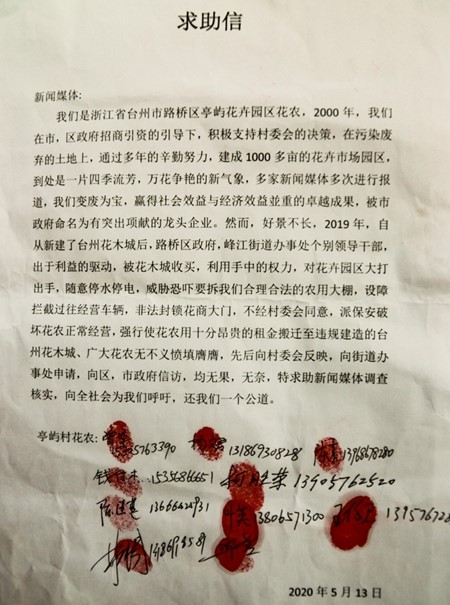 求助信
新闻媒体:
我们是浙江省台州市路桥区亭屿花卉园区花农，2000年，我们
在市，区政府招商引资的引导下，积极支持村委会的决策，在污染废
弃的土地上，通过多年的辛勤努力，建成1000多亩的花卉市场园区，
到处是一片四季流芳，万花争艳的新气象，多家新闻媒体多次进行报
道，我们变废为宝，赢得社会效益与经济效益並重的卓越成果，被市
政府命名为有突出项献的龙头企业。然而，好景不长，2019年，自
从新建了台州花木城后，路桥区政府，峰江街道办事处个别领导干部，
出于利益的驱动，被花木城收买，利用手中的权力，对花卉园区大打
出手，随意停水停电，威胁恐吓要拆我们合理合法的农用大棚，设障
拦截过往经营车辆，非法封锁花商大门，不经村委会同意，派保安破
坏花农正常经营，强行使花农用十分昂贵的租金搬迁至违规建造的台
州花木城、广大花农无不义愤填膺膺，先后向村委会反映，向街道办
事处申请，向区，市政府信访，均无果，无奈，特求助新闻媒体调查
核实，向全社会为我们呼吁，还我们一个公道。
亭屿村花农: 5763390 13186930828 13968678280
15356866651 13905762520
13666422931 13806571300
2020年5月13日